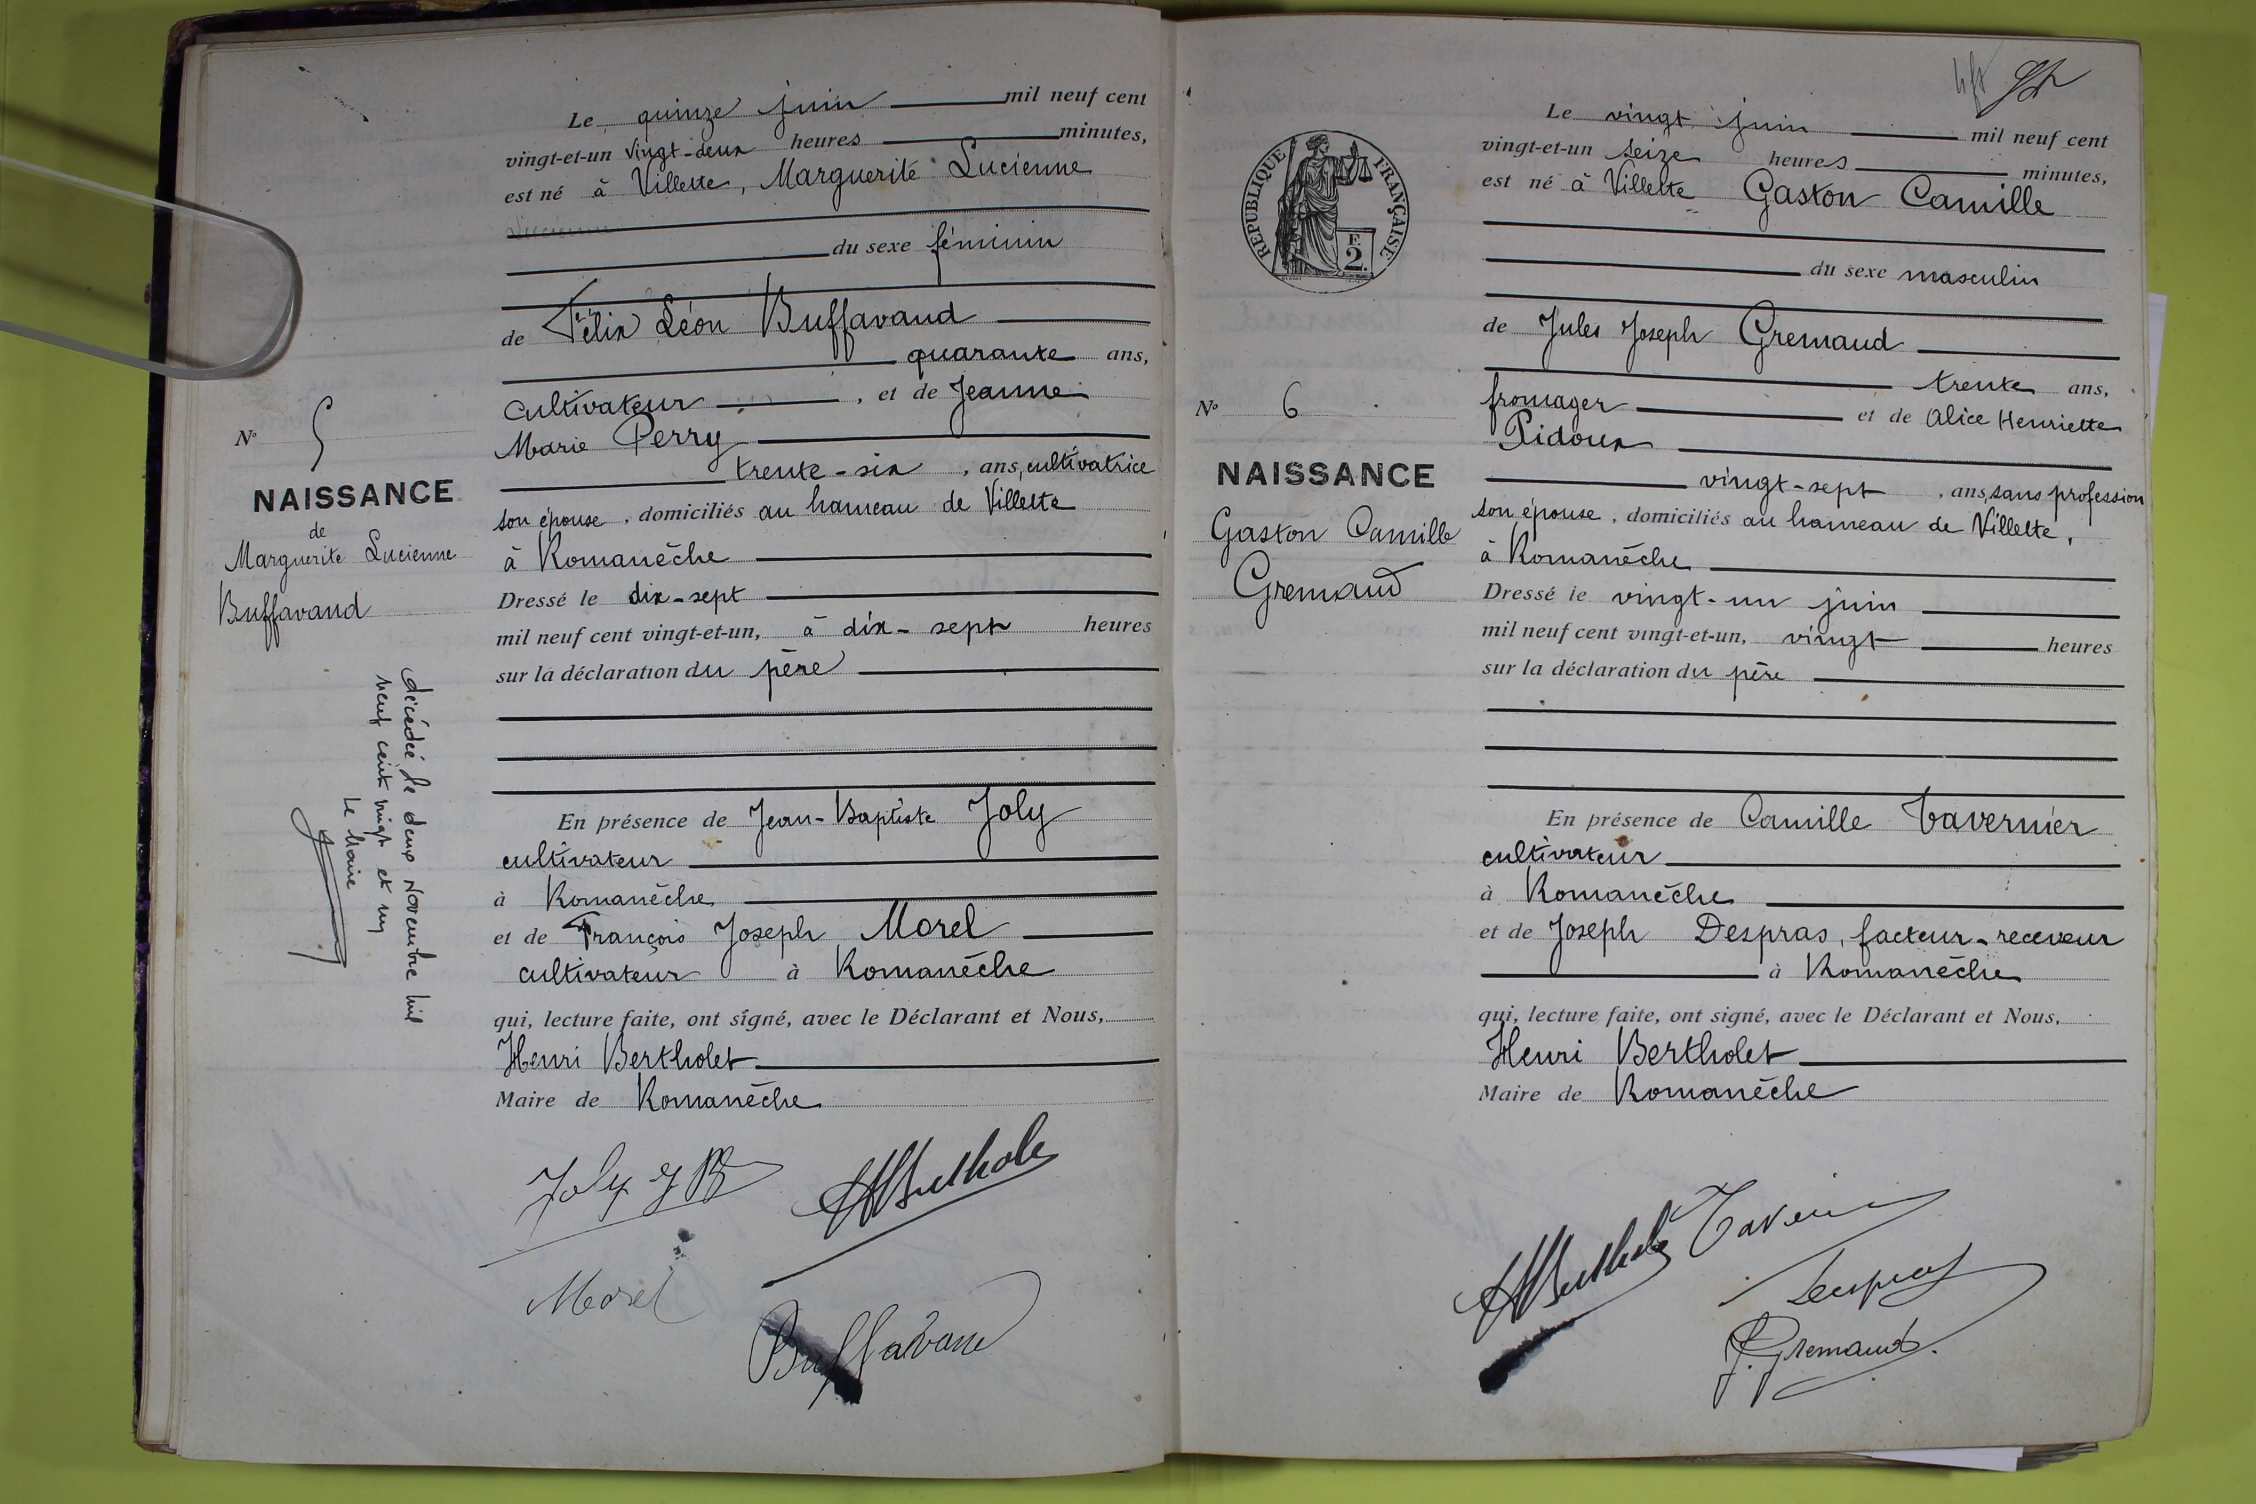 Le quinze juin mil neuf cent
vingt-et-un vingt-deux heures minutes,
est né à Villette, Marguerite Lucienne
du sexe féminin
de Félix Léon Buffavand
quarante ans,
cultivateur, et de Jeanne
Marie Perry
trente-six, ans, cultivatrice
son épouse, domiciliés au hameau de Villette
à Romanèche
Dressé le dix-sept
mil neuf cent vingt-et-un, à dix-sept heures
sur la déclaration du père
En présence de Jean-Baptiste Joly
cultivateur
à Romanèche
et de François Joseph Morel
cultivateur à Romanèche
qui, lecture faite, ont signé, avec le Déclarant et Nous,
Henri Bertholet
Maire de Romanèche
Joly J B
HBertholet
Morel
Buffavand
N° 5
NAISSANCE
de
Marguerite Lucienne
Buffavand
décédée le deux Novembre mil
neuf cent vingt et un
Le Maire
RÉPUBLIQUE FRANÇAISE
F.
2.
N° 6
NAISSANCE
Gaston Camille
Gremaud
Le vingt juin mil neuf cent
vingt-et-un seize heures minutes,
est né à Villette Gaston Camille
du sexe masculin
de Jules Joseph Gremaud
trente ans,
fromager et de Alice Henriette
Pidoux
vingt-sept, ans, sans profession
son épouse, domiciliés au hameau de Villette,
à Romanèche
Dressé le vingt-un juin
mil neuf cent vingt-et-un, vingt heures
sur la déclaration du père
En présence de Camille Tavernier
cultivateur
à Romanèche
et de Joseph Despras, facteur-receveur
à Romanèche
qui, lecture faite, ont signé, avec le Déclarant et Nous,
Henri Bertholet
Maire de Romanèche
HBertholet Tavernier
Despras
J. Gremaud